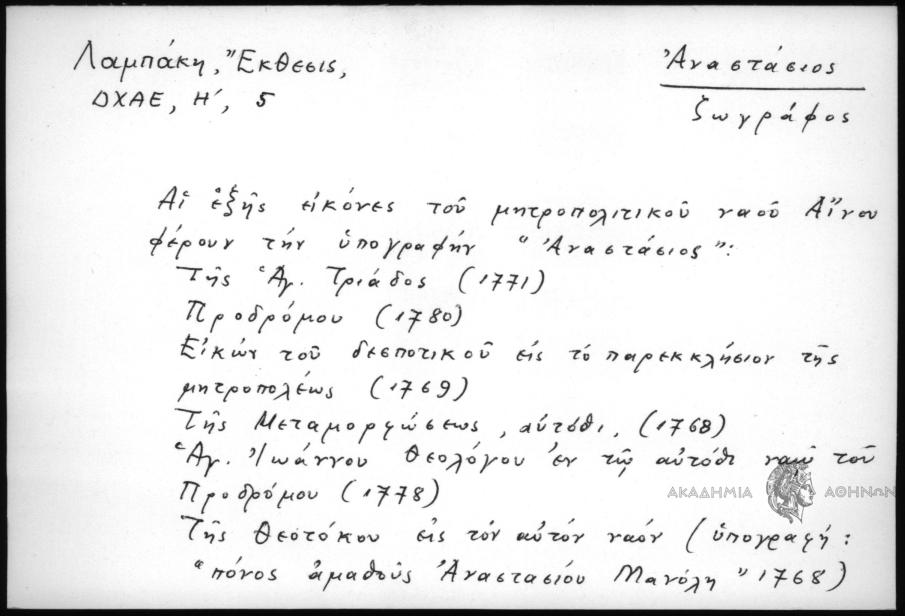 Λαμπάκη, Ἔκθεσις,
ΔΧΑΕ, Η΄, 5
Ἀναστάσιος
ζωγράφος
Αἱ ἑξῆς εἰκόνες τοῦ μητροπολιτικοῦ ναοῦ Αἴνου
φέρουν τήν ὑπογραφήν "Ἀναστάσιος":
Τῆς Ἁγ. Τριάδος (1771)
Προδρόμου (1780)
Εἰκών τοῦ δεσποτικοῦ εἰς τό παρεκκλήσιον τῆς
μητροπολέως (1769)
Τῆς Μεταμορφώσεως, αὐτόθι, (1768)
Ἁγ. Ἰωάννου Θεολόγου ἐν τῷ αὐτόθι ναῷ τοῦ
Προδρόμου (1778)
Τῆς Θεοτόκου εἰς τόν αὐτόν ναόν (ὑπογραφή:
"πόνος ἀμαθοῦς Ἀναστασίου Μανόλη" 1768)
ΑΚΑΔΗΜΙΑ ΑΘΗΝΩΝ